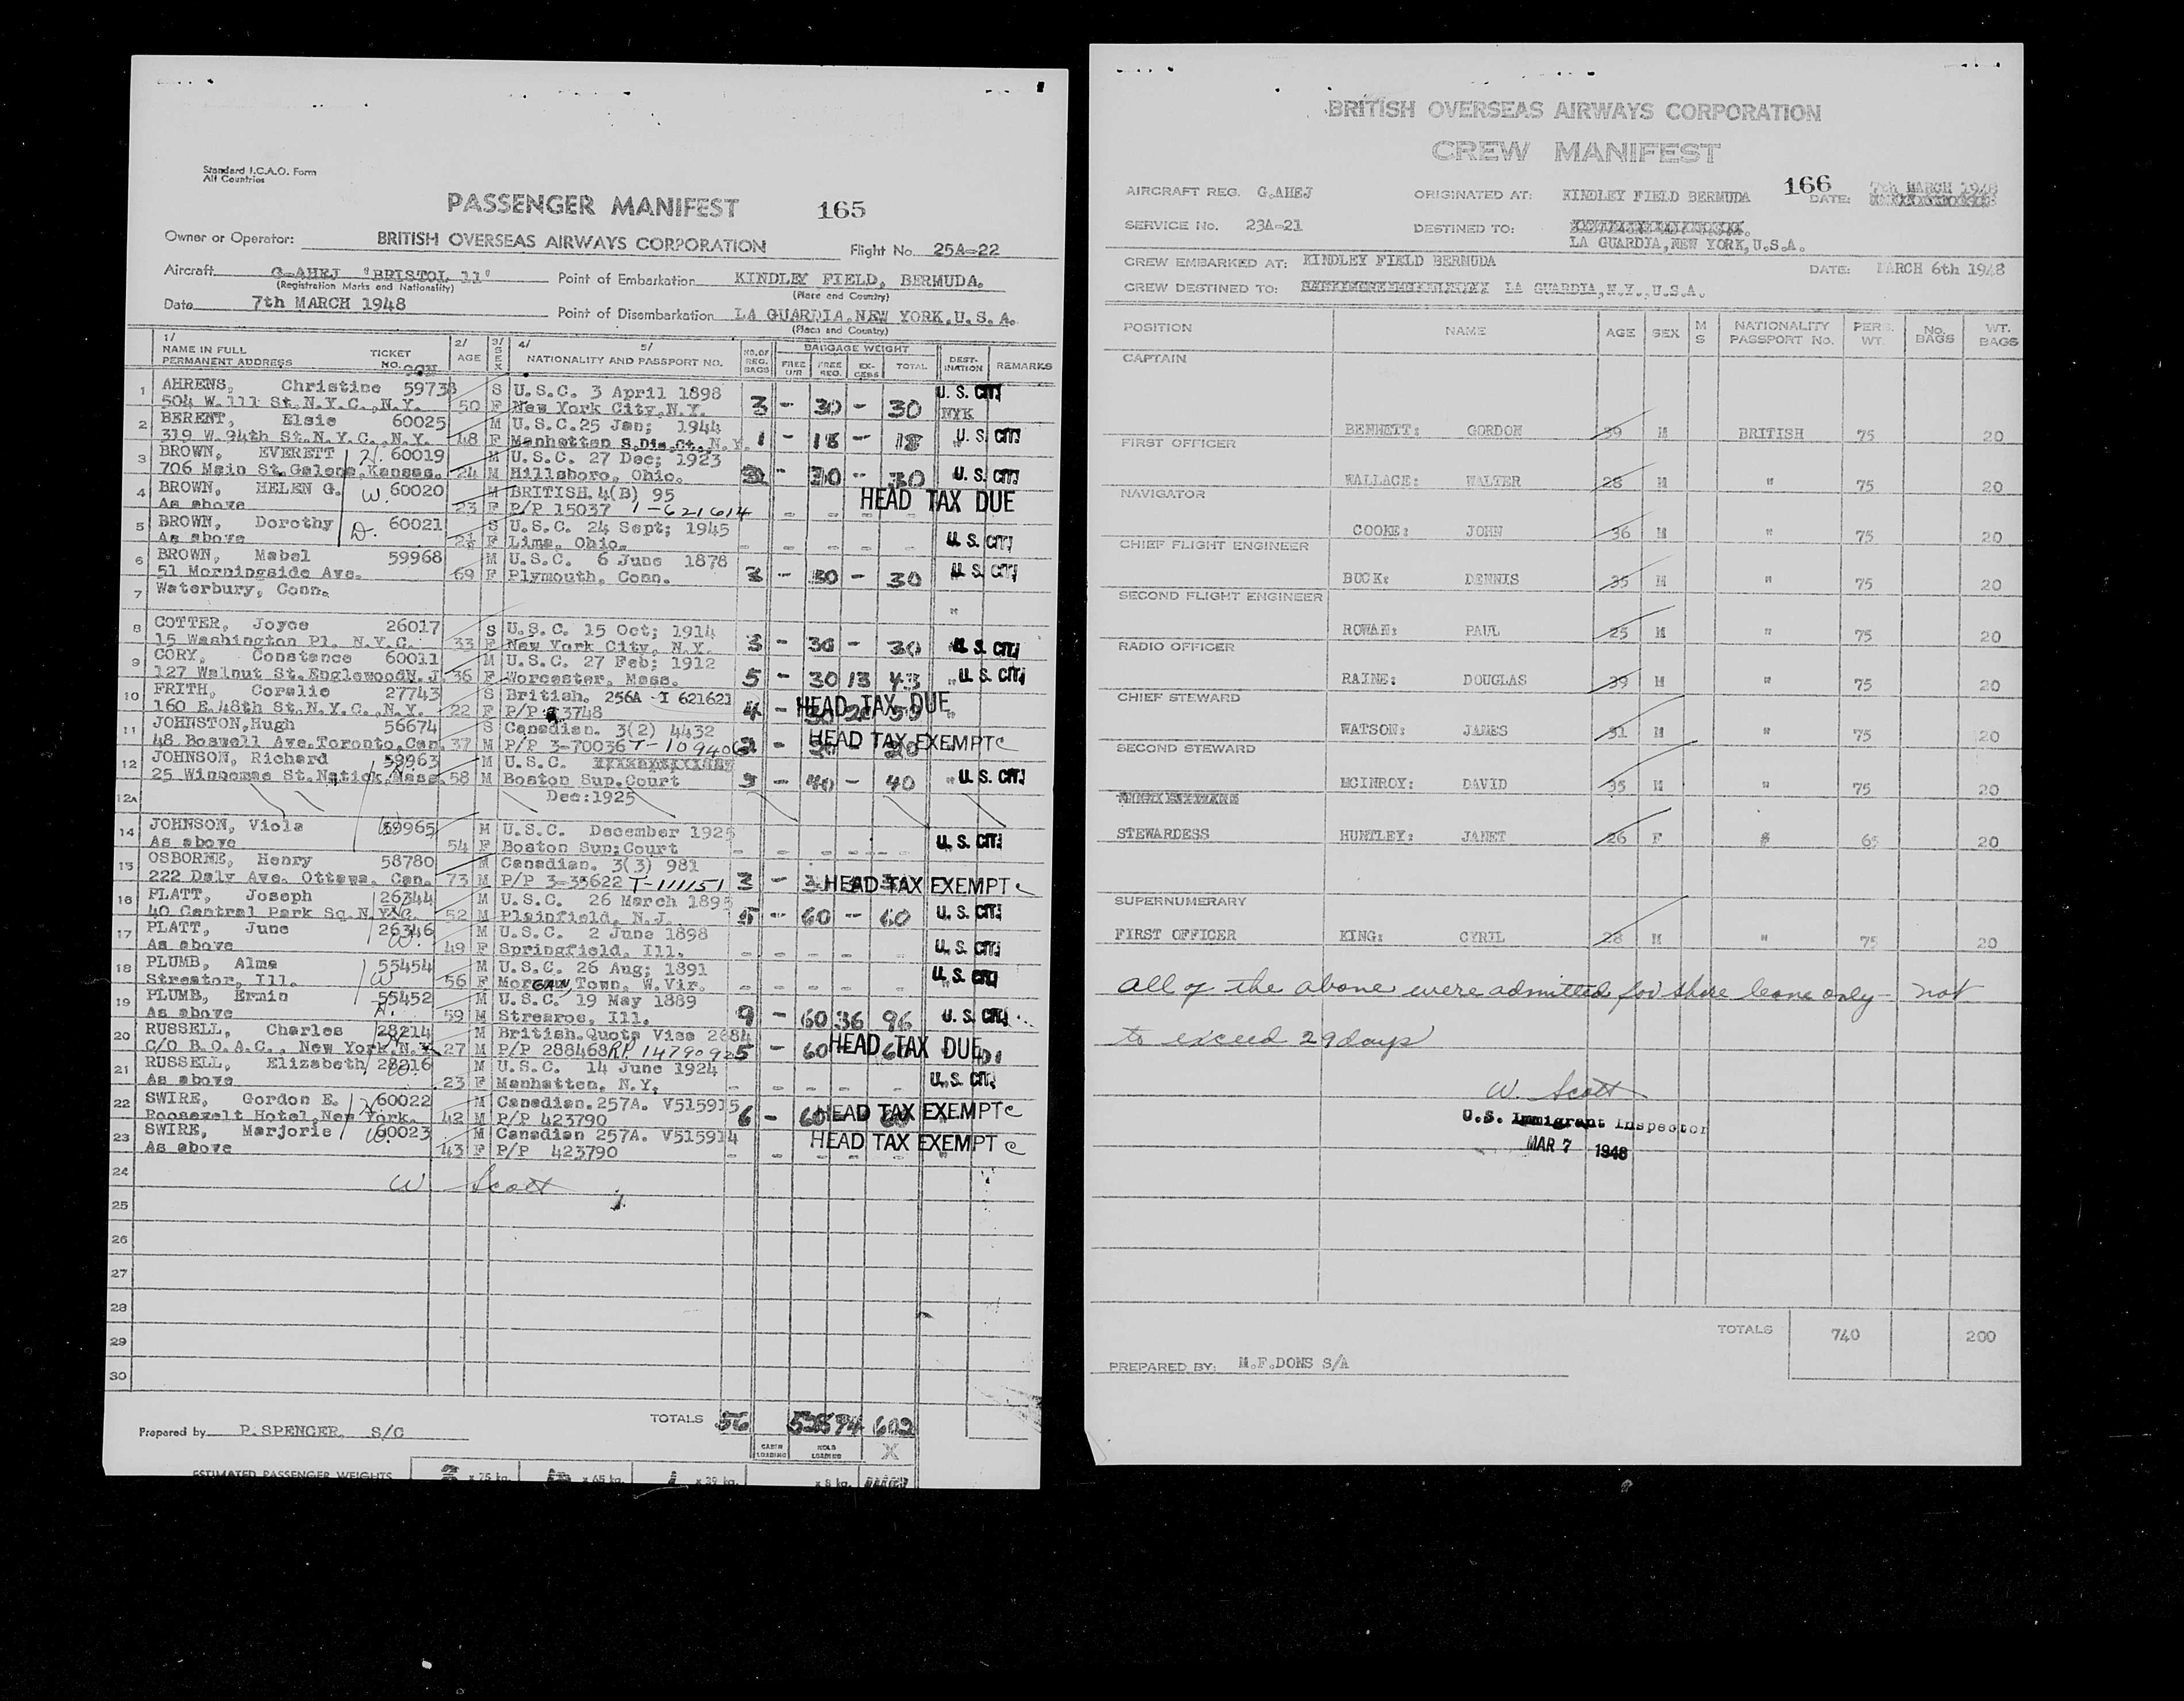 Standard I.C.A.O. Form
All Countries
PASSENGER MANIFEST 165
Owner or Operator: BRITISH OVERSEAS AIRWAYS CORPORATION Flight No. 25A-22
Aircraft G-AHEJ "BRISTOL 11" Point of Embarkation KINDLEY FIELD, BERMUDA.
(Registration Marks and Nationality) (Place and Country)
Date 7th MARCH 1948 Point of Disembarkation LA GUARDIA, NEW YORK, U.S.A.
(Place and Country)
1/ 2/ 3/ 4/ 5/ BAGGAGE WEIGHT
NAME IN FULL TICKET AGE SEX NATIONALITY AND PASSPORT NO. NO. OF REG. BAGS FREE FREE REG. EX-CESS TOTAL DEST-INATION REMARKS
PERMANENT ADDRESS NO.
1 AHRENS, Christine 59738 S U.S.C. 3 April 1898 U. S. CIT.
504 W. 111 St.N.Y.C.,N.Y. 50 F New York City,N.Y. 3 - 30 - 30 NYK
2 BERENT, Elsie 60025 M U.S.C.25 Jan; 1944
319 W.94th St.N.Y.C.,N.Y. 48 F Manhattan S.Dis.Ct.,N.Y. 1 - 18 - 18 " U. S. CIT.
3 BROWN, EVERETT H. 60019 M U.S.C. 27 Dec; 1923
706 Main St.Galena,Kansas. 24 M Hillsboro, Ohio. - 30 - 30 U. S. CIT.
4 BROWN, HELEN G. W. 60020 M BRITISH 4(B) 95 HEAD TAX DUE
As above 23 F P/P 15037 I-621614 - - - -
5 BROWN, Dorothy D. 60021 S U.S.C. 24 Sept; 1945
As above 2½ F Lima, Ohio. - - - - U. S. CIT.
6 BROWN, Mabel 59968 M U.S.C. 6 June 1878
51 Morningside Ave. 69 F Plymouth, Conn. 3 - 30 - 30 U. S. CIT.
7 Waterbury, Conn. "
8 COTTER, Joyce 26017 S U.S.C. 15 Oct; 1914
15 Washington Pl. N.Y.C. 33 F New York City, N.Y. 3 - 30 - 30 U. S. CIT.
9 CORY, Constance 60011 M U.S.C. 27 Feb; 1912
127 Walnut St.EnglewoodN.J. 36 F Worcester, Mass. 5 - 30 13 43 " U. S. CIT.
10 FRITH, Coralie 27743 S British. 256A I 621621 HEAD TAX DUE
160 E.48th St.N.Y.C.,N.Y. 22 F P/P 3748 4 -
11 JOHNSTON,Hugh 56674 S Canadian. 3(2) 4432
48 Boswell Ave.Toronto,Can. 37 M P/P 3-70036 T-109406 - HEAD TAX EXEMPT c
12 JOHNSON, Richard 59963 M U.S.C.
25 Winnemac St.Natick,Mass. 58 M Boston Sup.Court 3 - 40 - 40 " U. S. CIT.
12A Dec:1925
14 JOHNSON, Viola W 59965 M U.S.C. December 1925
As above 54 F Boston Sup:Court - - - - U. S. CIT.
15 OSBORNE, Henry 58780 M Canadian. 3(3) 981
222 Daly Ave. Ottawa, Can. 73 M P/P 3-35622 T-111151 3 - HEAD TAX EXEMPT c
16 PLATT, Joseph 26344 M U.S.C. 26 March 1895
40 Central Park So.N.Y.C. 52 M Plainfield, N.J. 5 - 60 - 60 U. S. CIT.
17 PLATT, June W. 26346 M U.S.C. 2 June 1898
As above 49 F Springfield, Ill. - - - - U. S. CIT.
18 PLUMB, Alma W 55454 M U.S.C. 26 Aug; 1891 U. S. CIT.
Streator, Ill. 56 F Morgan Town, W.Vir. - - - -
19 PLUMB, Ermin H. 55452 M U.S.C. 19 May 1889
As above 59 M Strearoe, Ill. 9 - 60 36 96 U. S. CIT.
20 RUSSELL, Charles 28214 M British.Quota Visa 2684
C/O B.O.A.C., New York.N.Y. 27 M P/P 288468 RP 1479092 5 - 60 HEAD TAX DUE
21 RUSSELL, Elizabeth W. 28216 M U.S.C. 14 June 1924
As above 23 F Manhatten, N.Y. - - - - U. S. CIT.
22 SWIRE, Gordon E. H 60022 M Canadian.257A. V515915
Roosevelt Hotel,New York. 42 M P/P 423790 6 - 60 HEAD TAX EXEMPT c
23 SWIRE, Marjorie W. 60023 M Canadian 257A. V515914 HEAD TAX EXEMPT c
As above 43 F P/P 423790 - - - -
24 W. Scott
25
26
27
28
29
30
TOTALS 56 528 74 602
Prepared by P. SPENCER. S/C
CABIN LOADING HOLD LOADING X
ESTIMATED PASSENGER WEIGHTS x 75 kg. x 65 kg. x 39 kg. x 8 kg.
BRITISH OVERSEAS AIRWAYS CORPORATION
CREW MANIFEST
AIRCRAFT REG. G.AHEJ ORIGINATED AT: KINDLEY FIELD BERMUDA 166 DATE: 7th MARCH 1948
SERVICE No. 23A-21 DESTINED TO: LA GUARDIA,NEW YORK,U.S.A.
CREW EMBARKED AT: KINDLEY FIELD BERMUDA DATE: MARCH 6th 1948
CREW DESTINED TO: LA GUARDIA,N.Y.,U.S.A.
POSITION NAME AGE SEX M S NATIONALITY PASSPORT No. PERS. WT. No. BAGS WT. BAGS
CAPTAIN
BENNETT: GORDON 39 M BRITISH 75 20
FIRST OFFICER
WALLACE: WALTER 28 M " 75 20
NAVIGATOR
COOKE: JOHN 36 M " 75 20
CHIEF FLIGHT ENGINEER
BUCK: DENNIS 35 M " 75 20
SECOND FLIGHT ENGINEER
ROWAN: PAUL 25 M " 75 20
RADIO OFFICER
RAINE: DOUGLAS 39 M " 75 20
CHIEF STEWARD
WATSON: JAMES 31 M " 75 20
SECOND STEWARD
MCINROY: DAVID 35 M " 75 20
STEWARDESS HUNTLEY: JANET 26 F 65 20
SUPERNUMERARY
FIRST OFFICER KING: CYRIL 28 M " 75 20
all of the above were admitted for shore leave only - not
to exceed 29 days
W. Scott
U.S. Immigrant Inspector
MAR 7 1948
TOTALS 740 200
PREPARED BY: M.F.DONS S/A